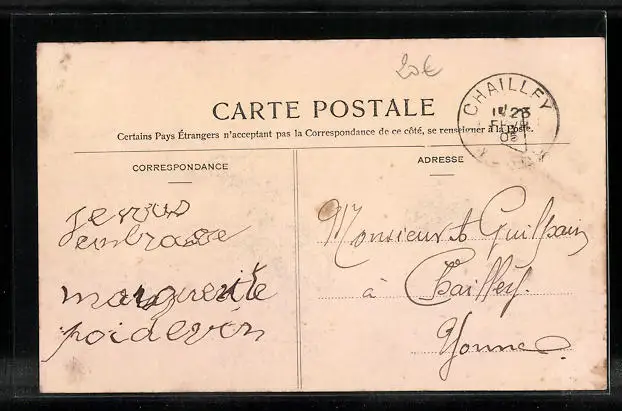 20€
CARTE POSTALE
Certains Pays Étrangers n'acceptant pas la Correspondance de ce côté, se renseigner à la Poste.
CHAILLEY
23
CORRESPONDANCE
ADRESSE
je vous
embrasse
marguerite
poidevin
Monsieur
à Chailley.
Yonne.